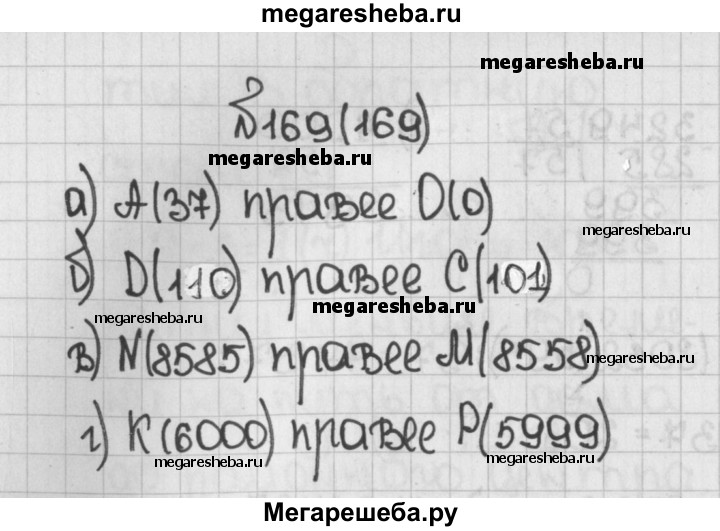 megaresheba.ru
megaresheba.ru
№169(169)
megaresheba.ru
а) A(37) правее O(0)
megaresheba.ru
б) D(110) правее C(101)
megaresheba.ru
megaresheba.ru
в) N(8585) правее M(8558)
megaresheba.ru
г) K(6000) правее P(5999)
megaresheba.ru
megaresheba.ru
Мегарешеба.ру